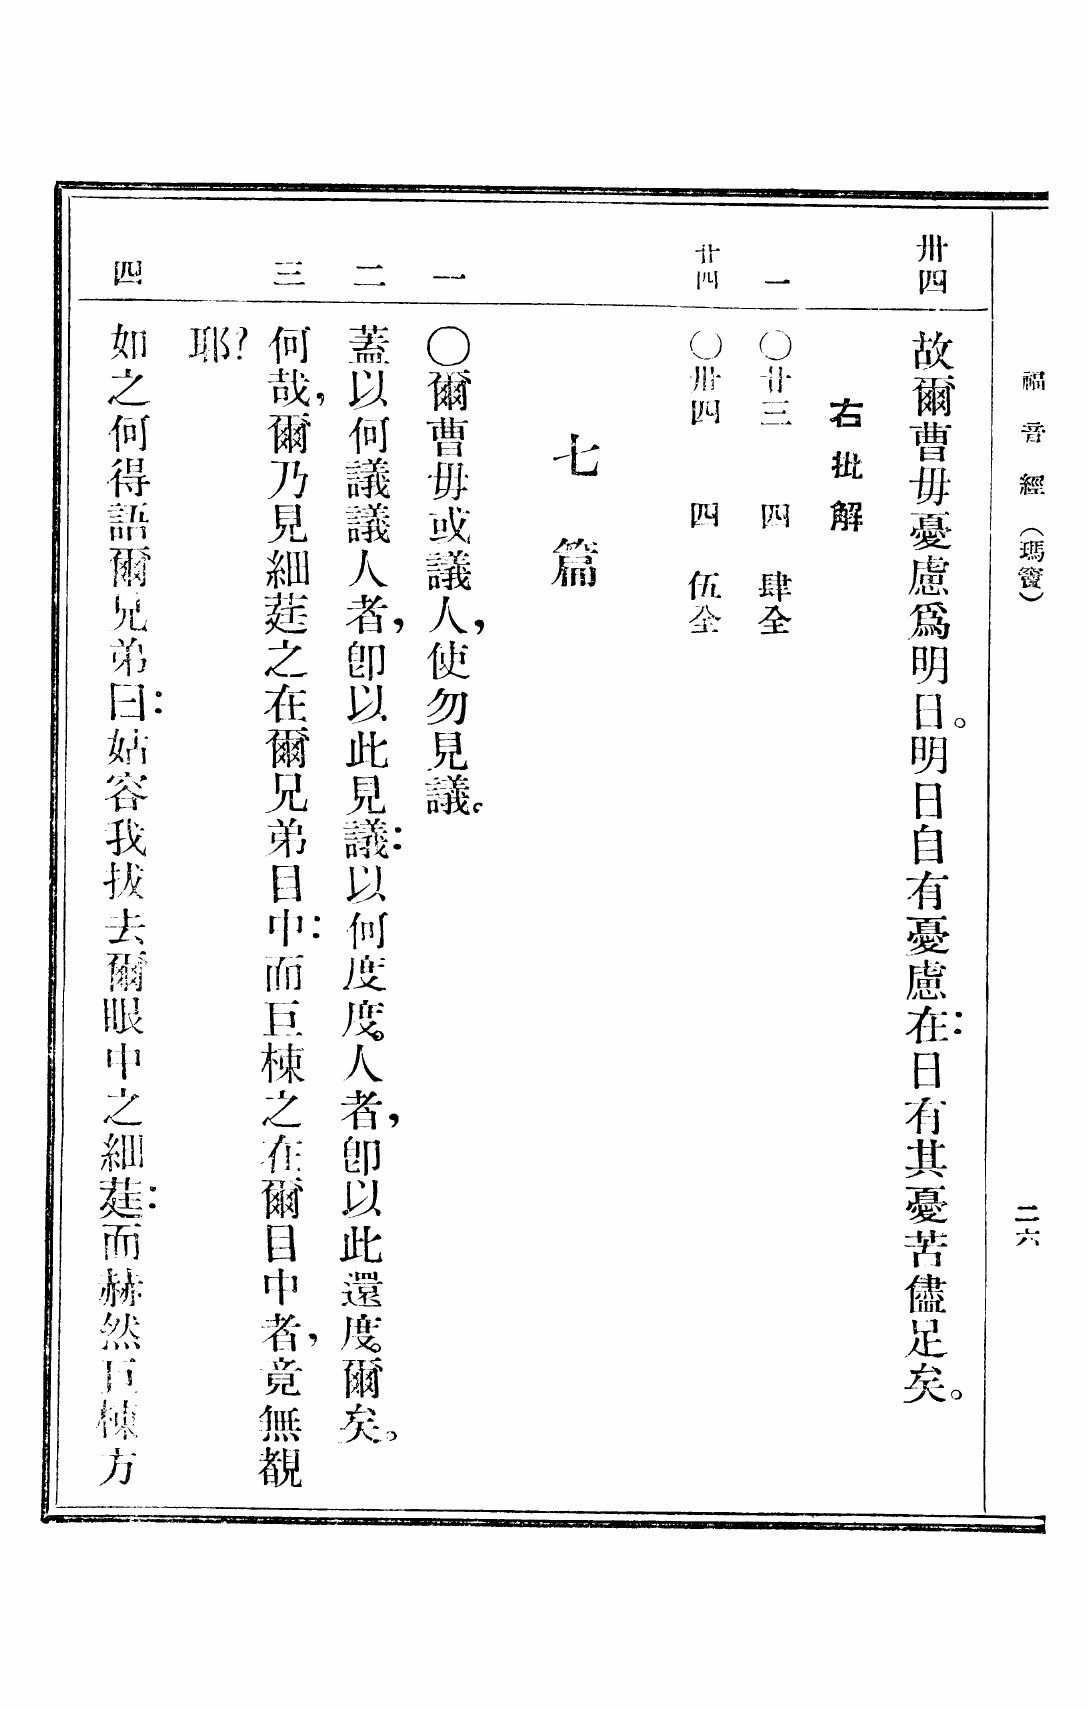 福音經（瑪竇） 二六
卅四 故爾曹毋憂慮爲明日。明日自有憂慮在：日有其憂苦儘足矣。
右批解
一 〇廿三 四 肆全
廿四 〇卅四 四 伍全
七篇
一 〇爾曹毋或議人，使勿見議。
二 蓋以何議議人者，卽以此見議：以何度度。人者，卽以此還度。爾矣。
三 何哉，爾乃見細莛之在爾兄弟目中：而巨棟之在爾目中者，竟無覩
耶？
四 如之何得語爾兄弟曰：姑容我拔去爾眼中之細莛：而赫然巨棟方